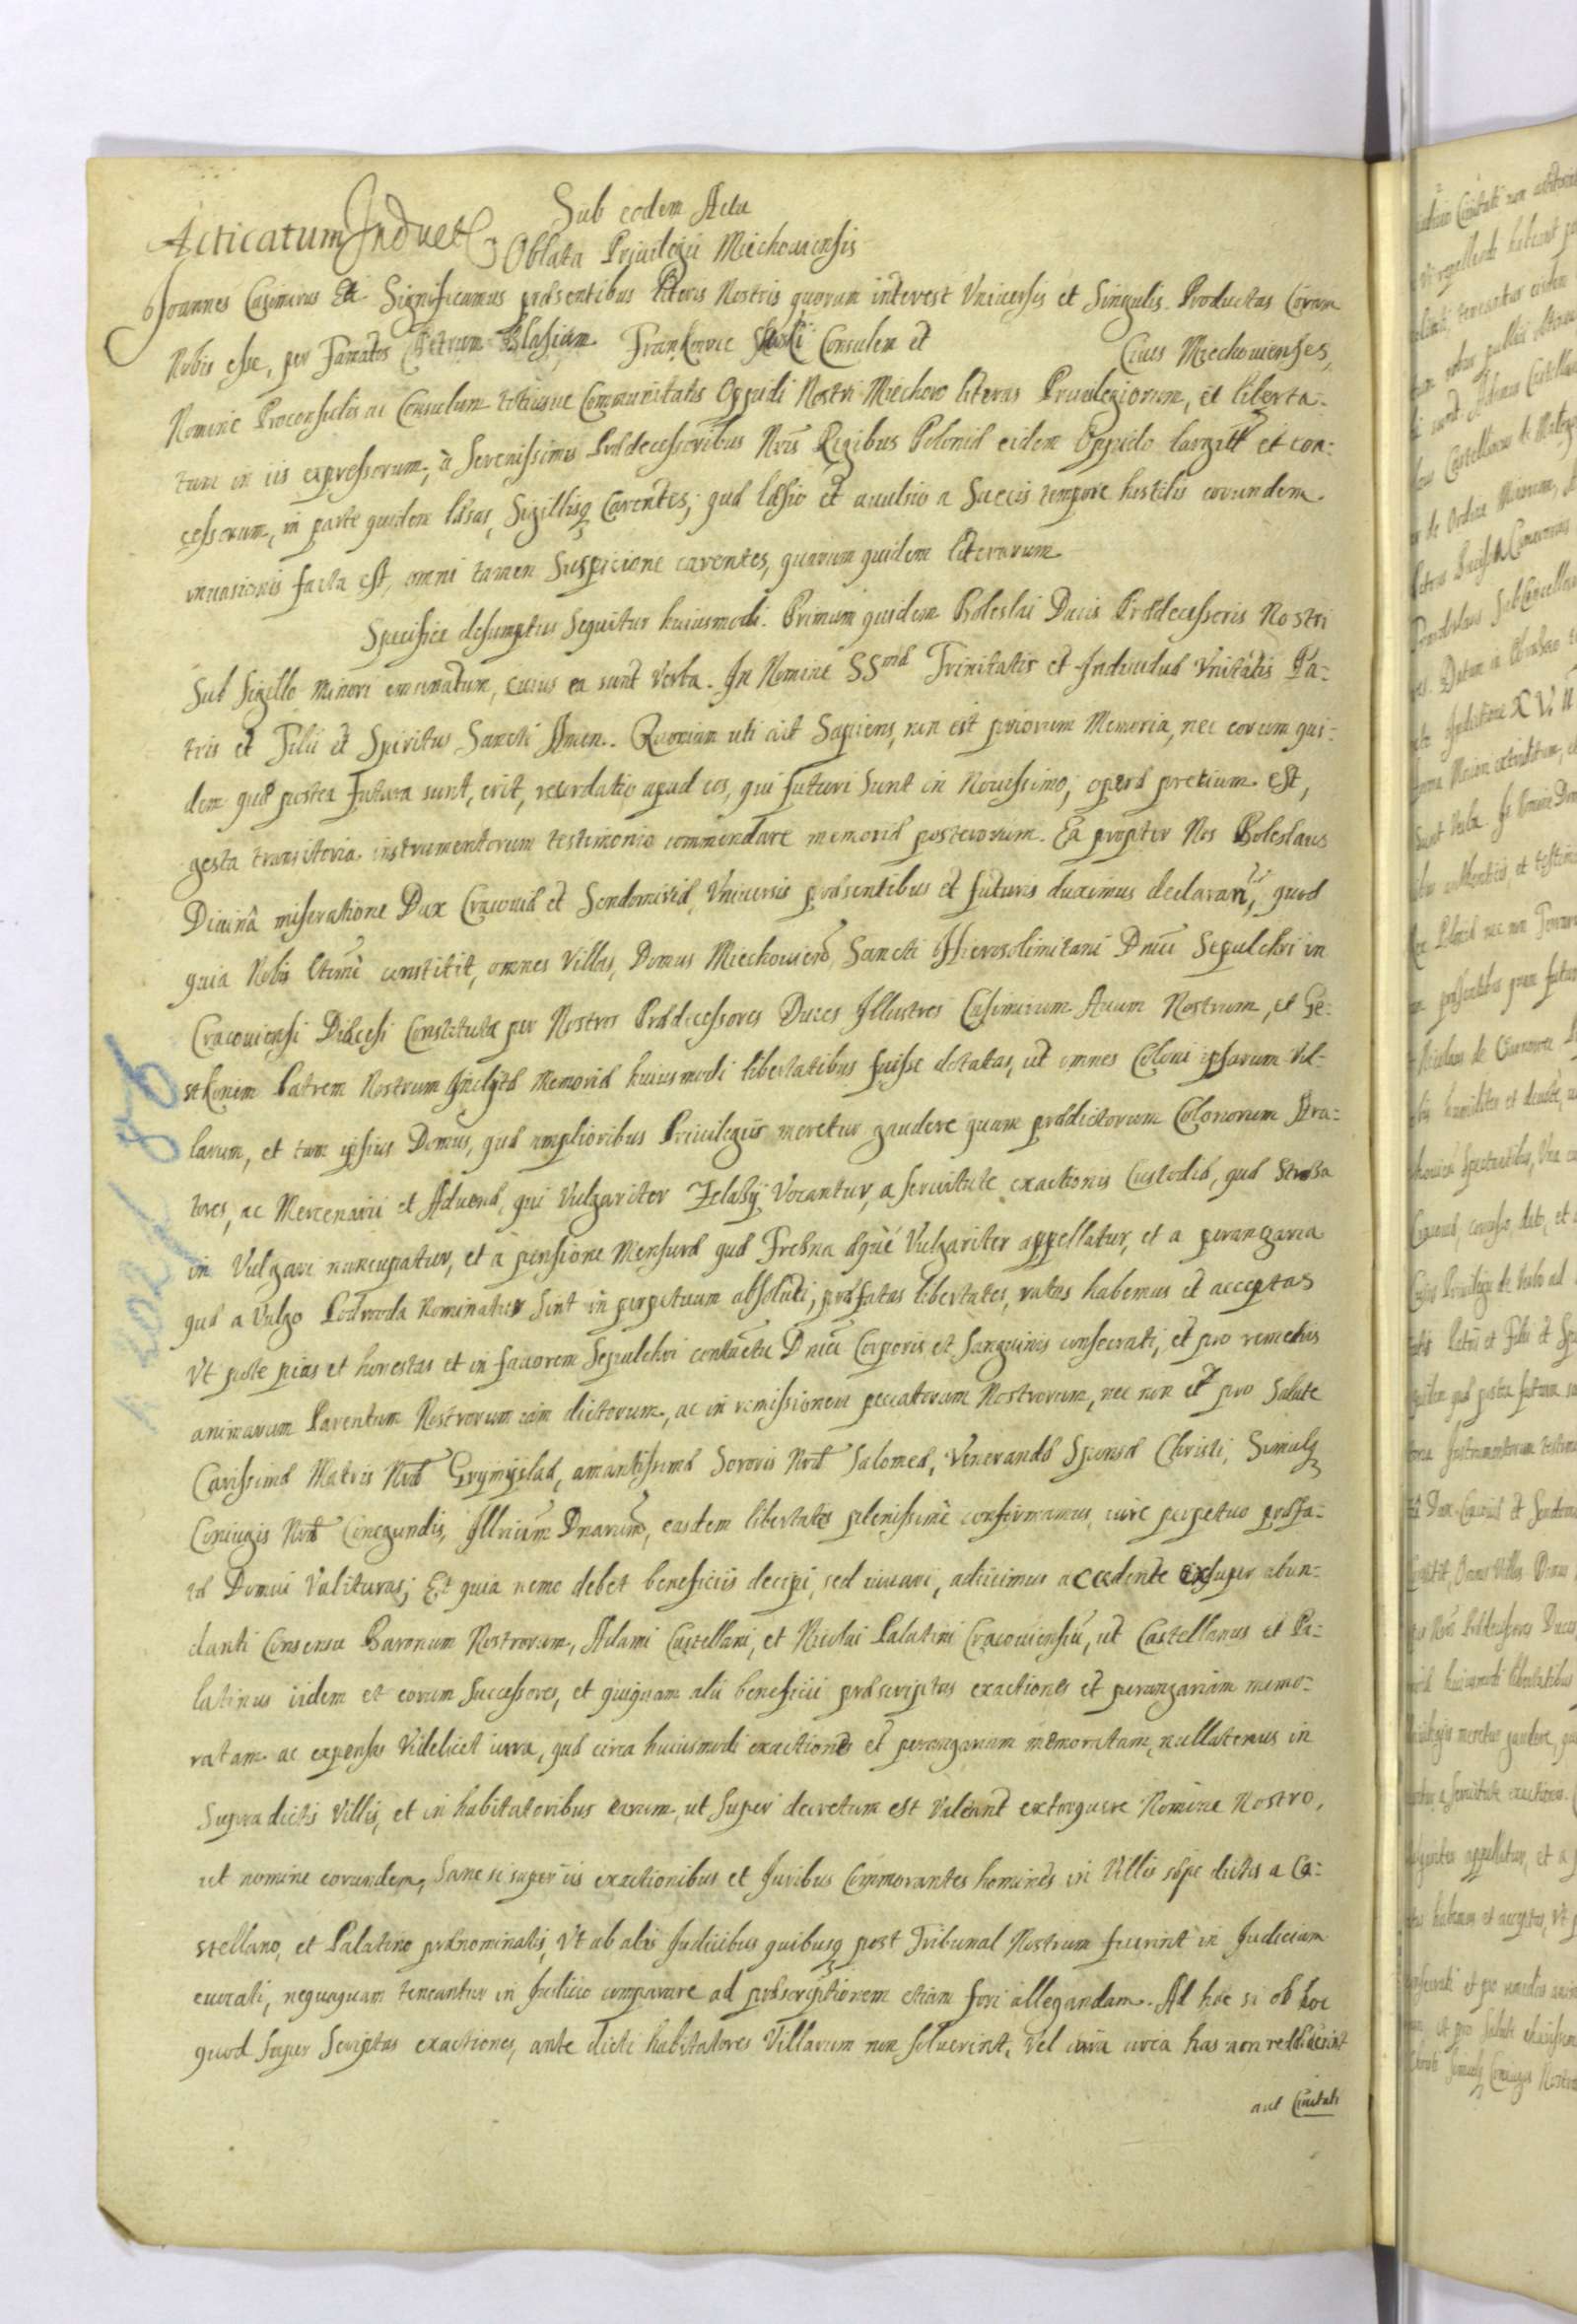 Sub eodem Actu
Acticatum Induct
Oblata Priuilegii Miechouiensis
Joannes Casimirus Etc Significamus præsentibus literis Nostris quorum interest Vniuersis et Singulis. Productas Coram
Nobis esse, per Famatos Petrum Blasium Frankowic Consulem et Ciues Miechouienses,
Nomine Proconsulis ac Consulum totiusue Communitatis Oppidi Nostri Miechow literas Priuilegiorum, et liberta-
tum in iis expressorum, à Serenissimis Prædecessoribus Nris Regibus Poloniæ eidem Oppido largit et con-
cessorum, in parte quidem læsas, Sigillisq Carentes; quæ læsio et auulsio a Suecis tempore hostilis eorundem
inuasionis facta est, omni tamen Suspicione carentes, quarum quidem literarum
Specifice desumptus Sequitur huiusmodi. Primum quidem Boleslai Ducis Prædecessoris Nostri
Sub Sigillo Minori emanatum, cuius ea sunt verba. In Nomine SSmæ Trinitatis et Indiuiduæ Vnitatis Pa-
tris et Filii et Spiritus Sancti Amen. Quoniam uti ait Sapiens, non est priorum Memoria, nec eorum qui-
dem quæ postea futura sunt, erit, recordatio apud eos, qui futuri Sunt in Nouissimo; operæ pretium est,
gesta transitoria instrumentorum testimonio commendare memoriæ posterorum. Ea propter Nos Boleslaus
Diuinâ miseratione Dux Cracouiæ et Sendomiriæ, Vniuersis præsentibus et futuris duximus declarand, quod
quia Nobis constitit, omnes Villas, Domus Miechouien, Sancti Hierosolimitani Dnici Sepulchri in
Cracouiensi Diæcesi Constitutæ per Nostros Prædecessores Duces Illustres Casimirum Auum Nostrum, et Le-
stkonem Patrem Nostrum Inclytæ Memoriæ huiusmodi libertatibus fuisse dotatas, ut omnes Coloni ipsarum Vil-
larum, et tum ipsius Domus, quæ amplioribus Priuilegiis meretur gaudere quam prædictorum Colonorum Ara-
tores, ac Mercenarii et Aduenæ, qui Vulgariter Zelazy Vocantur, a seruitute exactionis Custodiæ, quæ Stroza
in Vulgari nuncupatur, et à pensione Mensuræ quæ Trebna æquè Vulgariter appellatur, et a perangaria
quæ a Vulgo Podwoda Nominatur Sint in perpetuum absoluti, præfatas libertates, ratas habemus et acceptas
Vt pote pias et honestas et in fauorem Sepulchri contactu Dnici Corporis et Sanguinis consecrati, et pro remediis
animarum Parentum Nostrorum iam dictorum, ac in remissionem peccatorum Nostrorum, nec non et pro Salute
Carissimæ Matris Nræ Grymyslaæ, amantissimæ Sororis Nræ Salomeæ, Venerandæ Sponsæ Christi, Simulq
Coniugis Nræ Conegundis, Illrium Dnarum, easdem libertates plenissime confirmamus, iure perpetuo præfa-
tæ Domui Valituras; Et quia nemo debet beneficiis decipi, sed iuuari, adiicimus accedente exsuper abun-
danti Consensu Baronum Nostrorum, Adami Castellani, et Nicolai Palatini Cracouiensiu, ut Castellanus et Pa-
latinus iidem et eorum Successores, et quiquam alii beneficii præscriptas exactiones et perangariam memo-
ratam ac expensas Videlicet iura, quæ circa huiusmodi exactiones et perangariam memoratam, nullatenus in
Supra dictis Villis, et in habitatoribus earum, ut Super decretum est Valeant extorquere Nomine Nostro,
ut nomine eorundem, Sane si super iis exactionibus et Iuribus Commorantes homines in Villis sæpe dictis a Ca-
stellano, et Palatino prænominatis, Vt ab aliis Iudicibus quibusq post Tribunal Nostrum fuerint in Iudicium
euocati, nequaquam teneantur in Iudicio comparare ad præscriptionem etiam fori allegandam. Ad hæc si ob hoc
quod Super Scriptas exactiones, ante dicti habitatores Villarum non soluerint, Vel iura circa has non reddiderint
aut Ciuitati